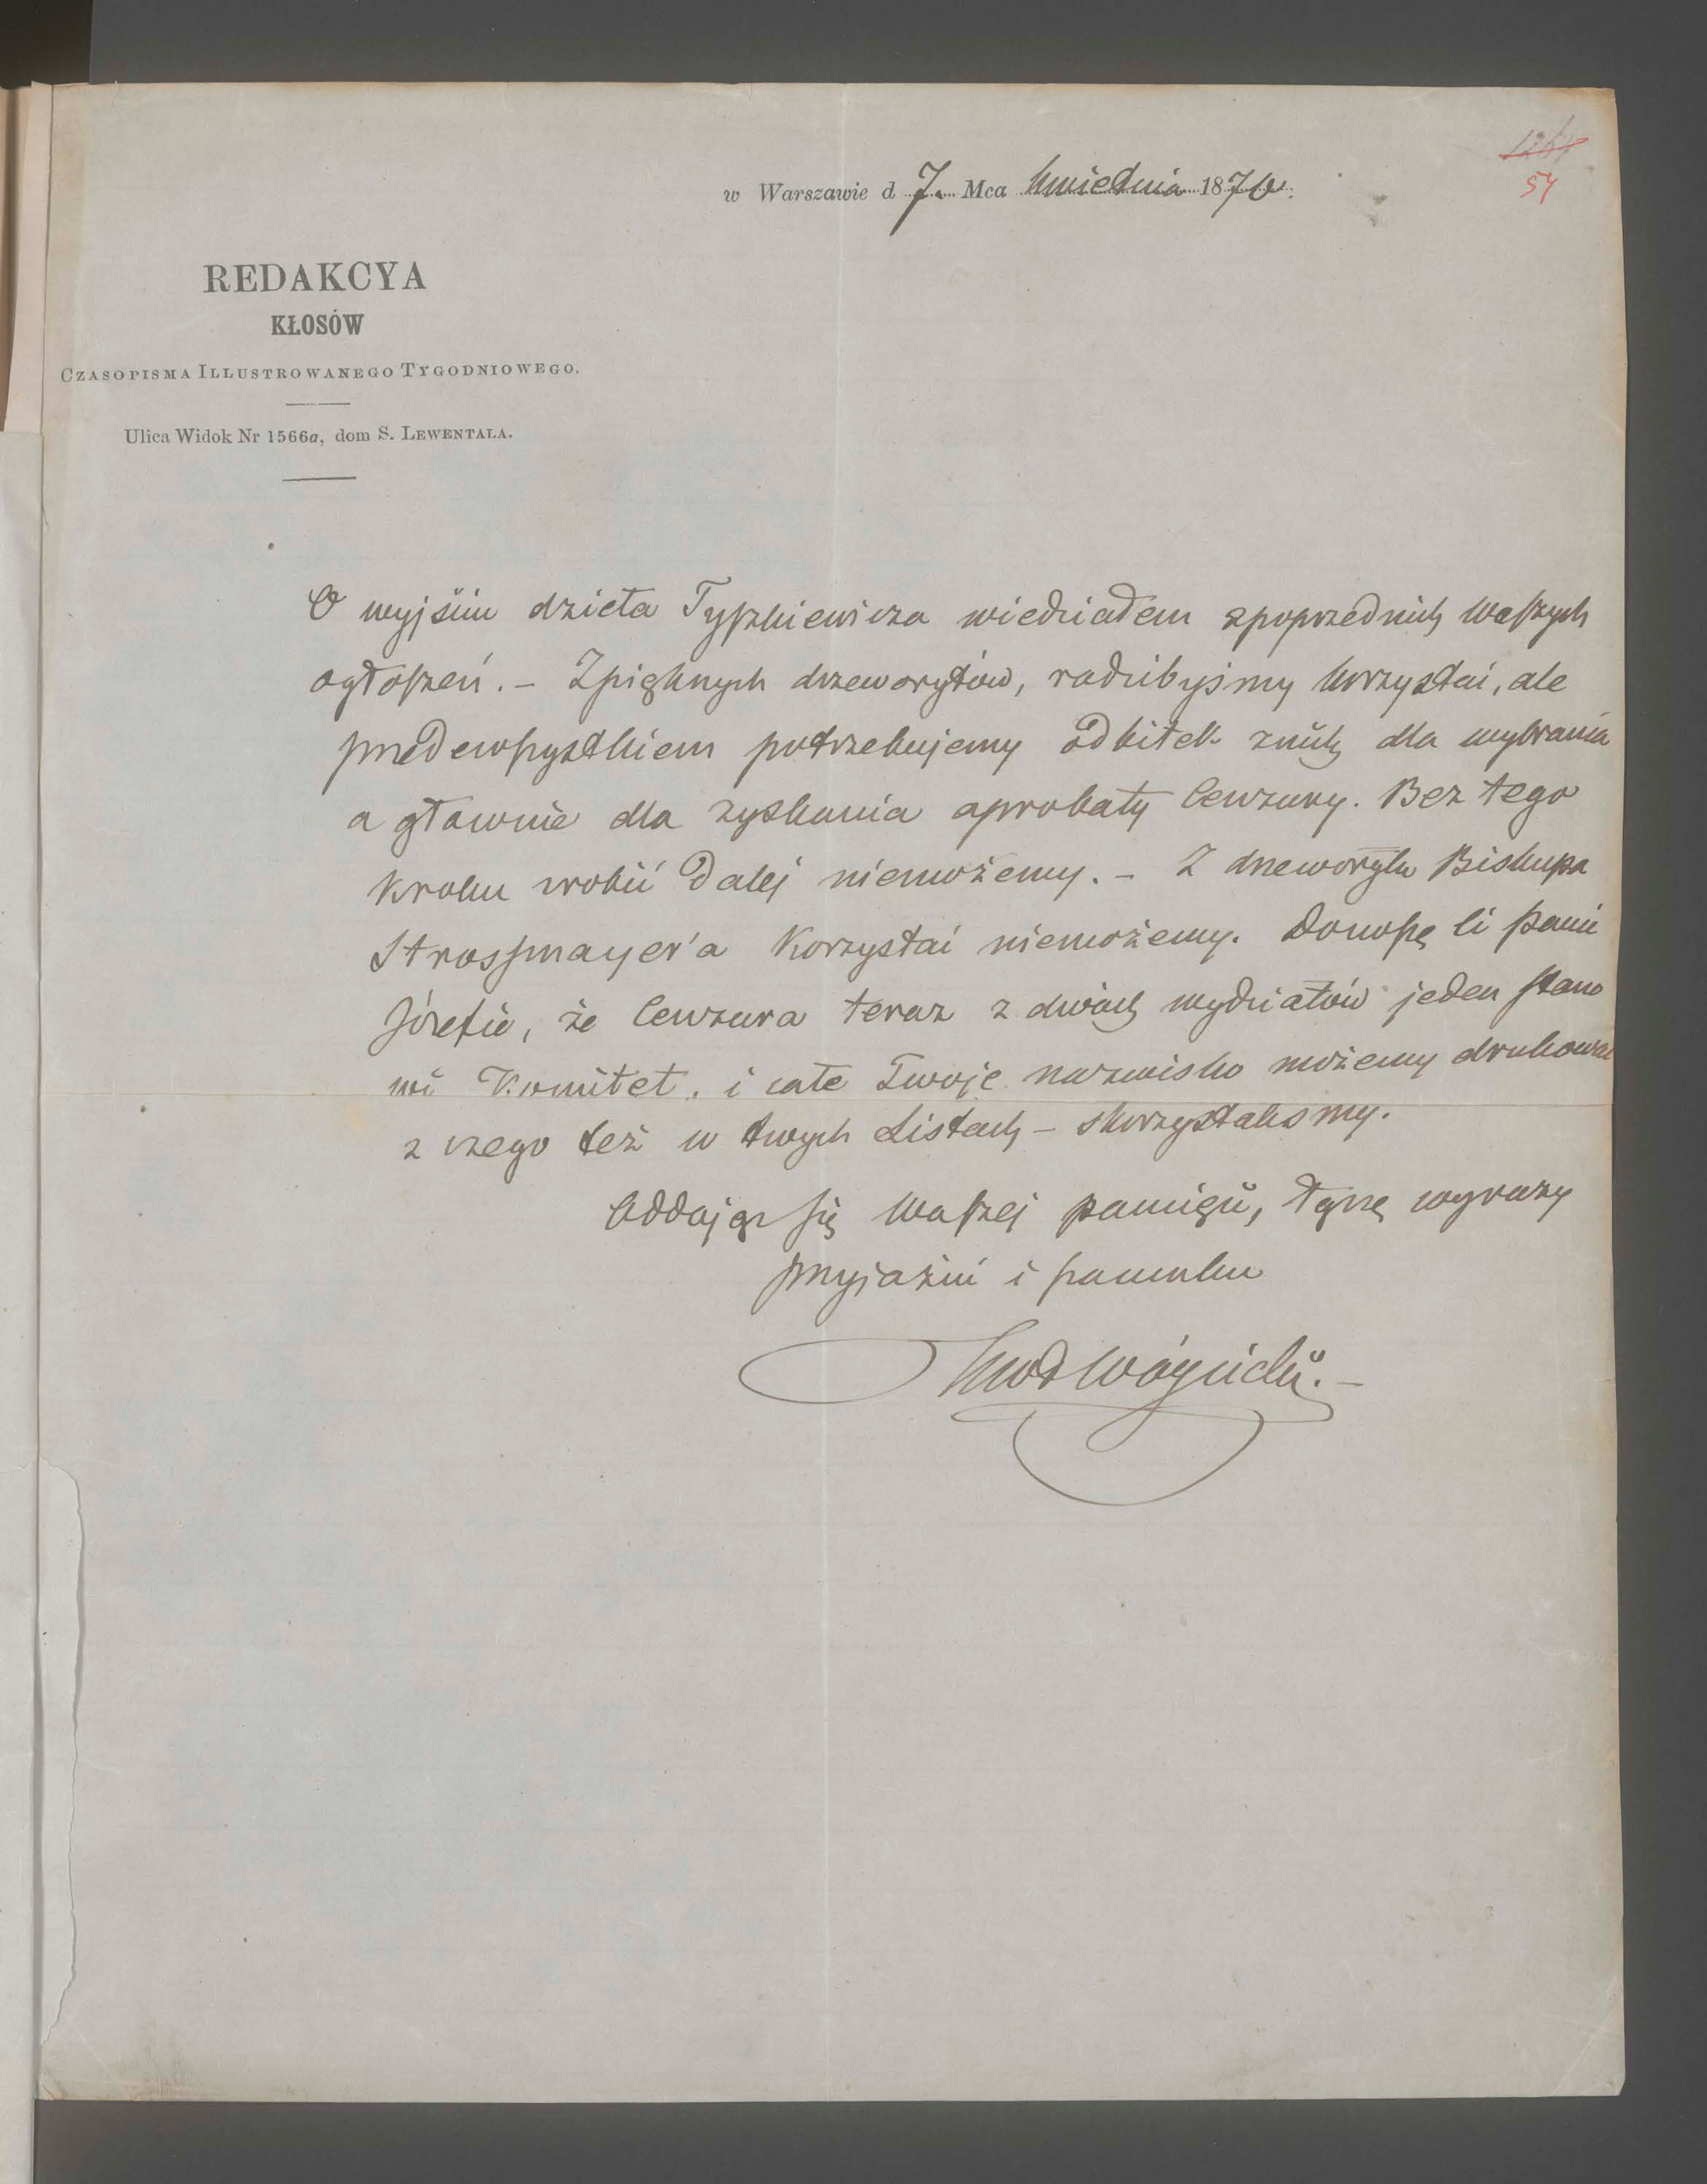 1261
54
w Warszawie d 7. Mca kwietnia 1870.
REDAKCYA
KŁOSÓW
CZASOPISMA ILLUSTROWANEGO TYGODNIOWEGO.
Ulica Widok Nr 1566a, dom S. LEWENTALA.
O wyjściu dzieła Tyszkiewicza wiedziałem zpoprzednich Waszych
ogłoszeń. – Zpięknych drzeworytów, radzibyśmy korzystać, ale
przedewszystkiem potrzebujemy odbitek znich dla wybrania
a głównie dla zyskania aprobaty Cenzury. Bez tego
Kroku zrobić dalej niemożemy. – Z drzeworytu Biskupa
Strossmayer'a Korzystać niemożemy. Donoszę Ci Panie
Józefie, że Cenzura teraz z dwóch wydziałów jeden stano
wi Komitet. i całe Twoje nazwisko możemy drukować
z czego też w twych Listach – skorzystaliśmy.
Oddając się Waszej pamięci, łączę wyrazy
przyjaźni i szacunku
KWł Wójcicki. –